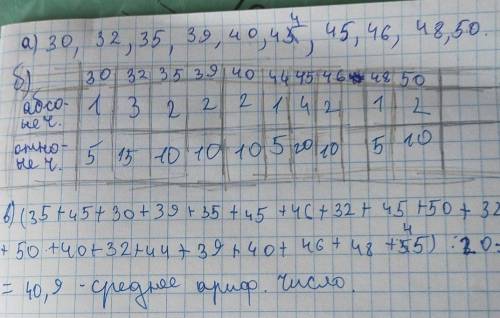 а) 30, 32, 35, 39, 40, 44, 45, 46, 48, 50.
б) 30 32 35 39 40 44 45 46 48 50
абсо-
не ч. 1 3 2 2 2 1 4 2 1 2
отно-
не ч. 5 15 10 10 10 5 20 10 5 10
в) (35+45+30+39+35+45+46+32+45+50+32
+50+40+32+44+39+40+46+48+45) :20=
= 40,9 - среднее ариф. число.